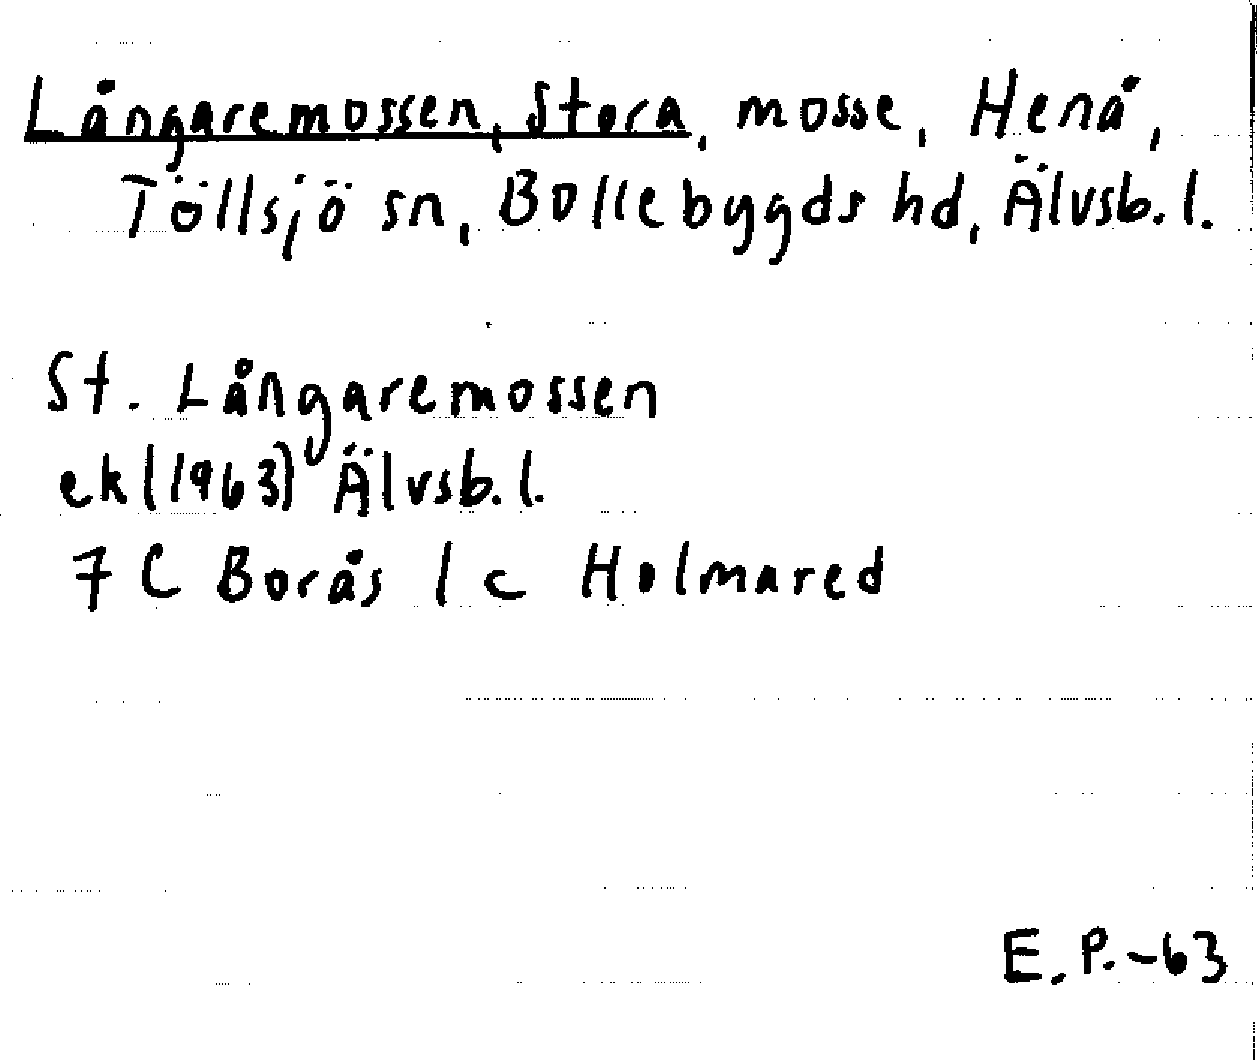 Långaremossen, Stora, mosse, Henå,
Töllsjö sn, Bollebygds hd, Älvsb. l.
St. Långaremossen
ek (1963) Älvsb. l.
7 C Borås 1 c Holmared
E. P. -63